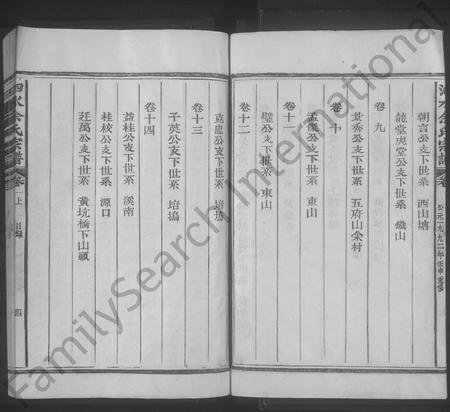 朝言公支下世系 西山塘
卷九
龍堂虎堂公支下世系 鐵山
景秀公支下世系 五府山余村
卷十
孟儀公支下世系 東山
卷十一
璧公支下世系 東山
卷十二
克忠公支下世系 培塢
卷十三
子英公支下世系 培塢
卷十四
益桂公支下世系 溪南
桂枝公支下世系 源口
廷萬公支下世系 黃坑橋下山頭
泗水余氏宗譜 卷一上 目錄 四
公元一九九二年壬申重修
FamilySearch International